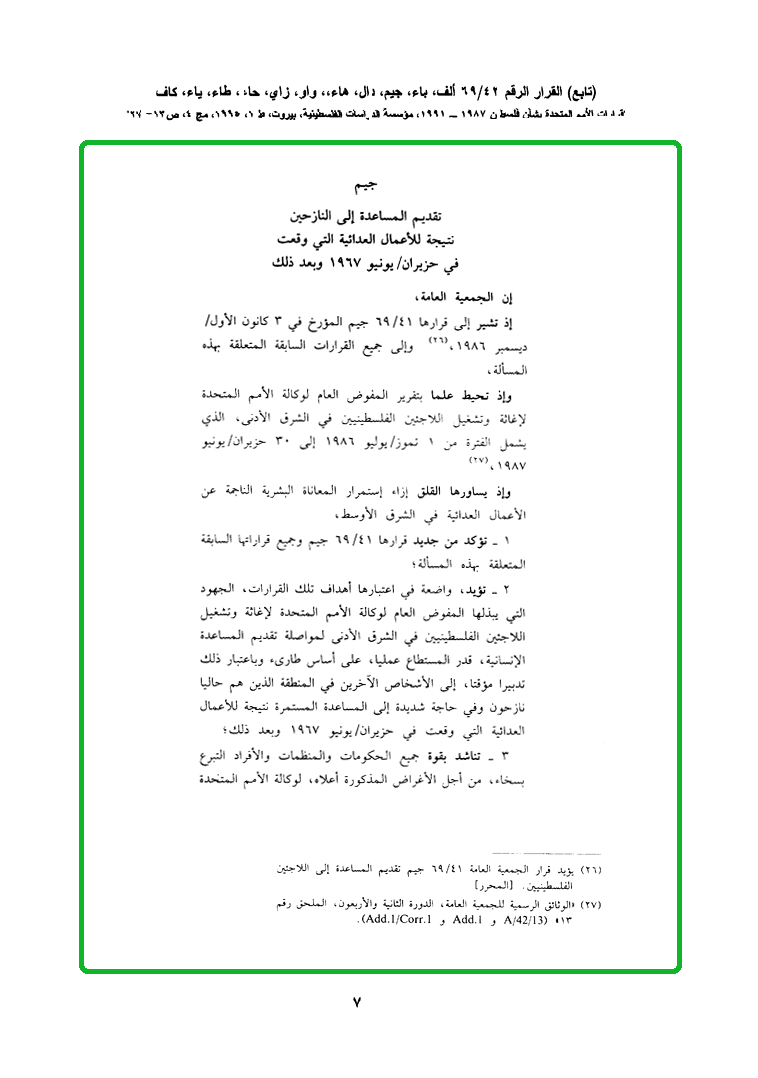 (تابع) القرار الرقم ٦٩/٤٢ ألف، باء، جيم، دال، هاء،، واو، زاي، حاء، طاء، ياء، كاف
قرارات الأمم المتحدة بشأن فلسطين ١٩٨٧ – ١٩٩١، مؤسسة الدراسات الفلسطينية، بيروت، ط ١، ١٩٩٥، مج ٤، ص ١٣– ٢٧
جيم
تقديم المساعدة إلى النازحين
نتيجة للأعمال العدائية التي وقعت
في حزيران/يونيو ١٩٦٧ وبعد ذلك
إن الجمعية العامة،
إذ تشير إلى قرارها ٦٩/٤١ جيم المؤرخ في ٣ كانون الأول/
ديسمبر ١٩٨٦،(٢٦) وإلى جميع القرارات السابقة المتعلقة بهذه
المسألة،
وإذ تحيط علما بتقرير المفوض العام لوكالة الأمم المتحدة
لإغاثة وتشغيل اللاجئين الفلسطينيين في الشرق الأدنى، الذي
يشمل الفترة من ١ تموز/يوليو ١٩٨٦ إلى ٣٠ حزيران/يونيو
١٩٨٧،(٢٧)
وإذ يساورها القلق إزاء إستمرار المعاناة البشرية الناجمة عن
الأعمال العدائية في الشرق الأوسط،
١ ـ تؤكد من جديد قرارها ٦٩/٤١ جيم وجميع قراراتها السابقة
المتعلقة بهذه المسألة؛
٢ ـ تؤيد، واضعة في اعتبارها أهداف تلك القرارات، الجهود
التي يبذلها المفوض العام لوكالة الأمم المتحدة لإغاثة وتشغيل
اللاجئين الفلسطينيين في الشرق الأدنى لمواصلة تقديم المساعدة
الإنسانية، قدر المستطاع عمليا، على أساس طارىء وباعتبار ذلك
تدبيرا مؤقتا، إلى الأشخاص الآخرين في المنطقة الذين هم حاليا
نازحون وفي حاجة شديدة إلى المساعدة المستمرة نتيجة للأعمال
العدائية التي وقعت في حزيران/يونيو ١٩٦٧ وبعد ذلك؛
٣ ـ تناشد بقوة جميع الحكومات والمنظمات والأفراد التبرع
بسخاء، من أجل الأغراض المذكورة أعلاه، لوكالة الأمم المتحدة
(٢٦) يؤيد قرار الجمعية العامة ٦٩/٤١ جيم تقديم المساعدة إلى اللاجئين
الفلسطينيين. [المحرر]
(٢٧) «الوثائق الرسمية للجمعية العامة، الدورة الثانية والأربعون، الملحق رقم
١٣» (A/42/13 و Add.1 و Add.1/Corr.1).
٧